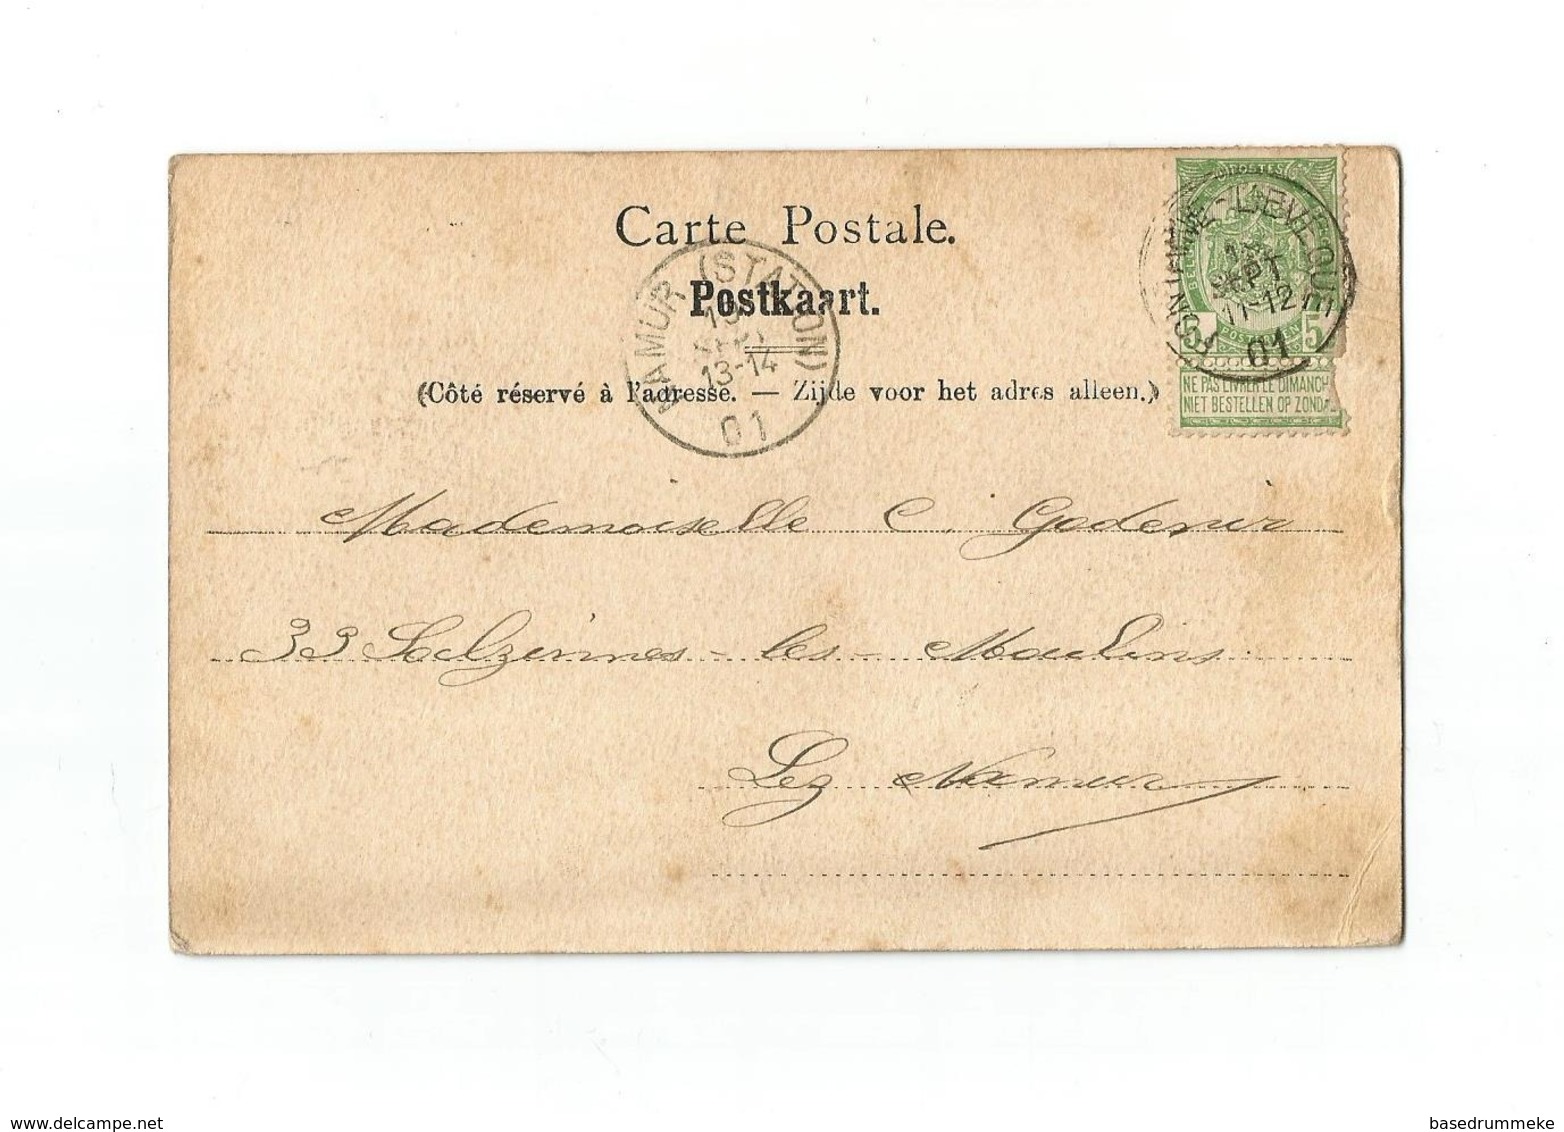 Carte Postale.
Postkaart.
(Côté réservé à l'adresse. — Zijde voor het adres alleen.)
NAMUR (STATION)
13
SEPT
13-14
01
FONTAINE-L'EVEQUE
13
SEPT
11-12
01
POSTES
5 POSTERIJEN 5
NE PAS LIVRER LE DIMANCHE
NIET BESTELLEN OP ZONDAG
Mademoiselle C. Godenir
33 Salzinnes-les-Moulins
Lez Namur
www.delcampe.net
basedrummeke